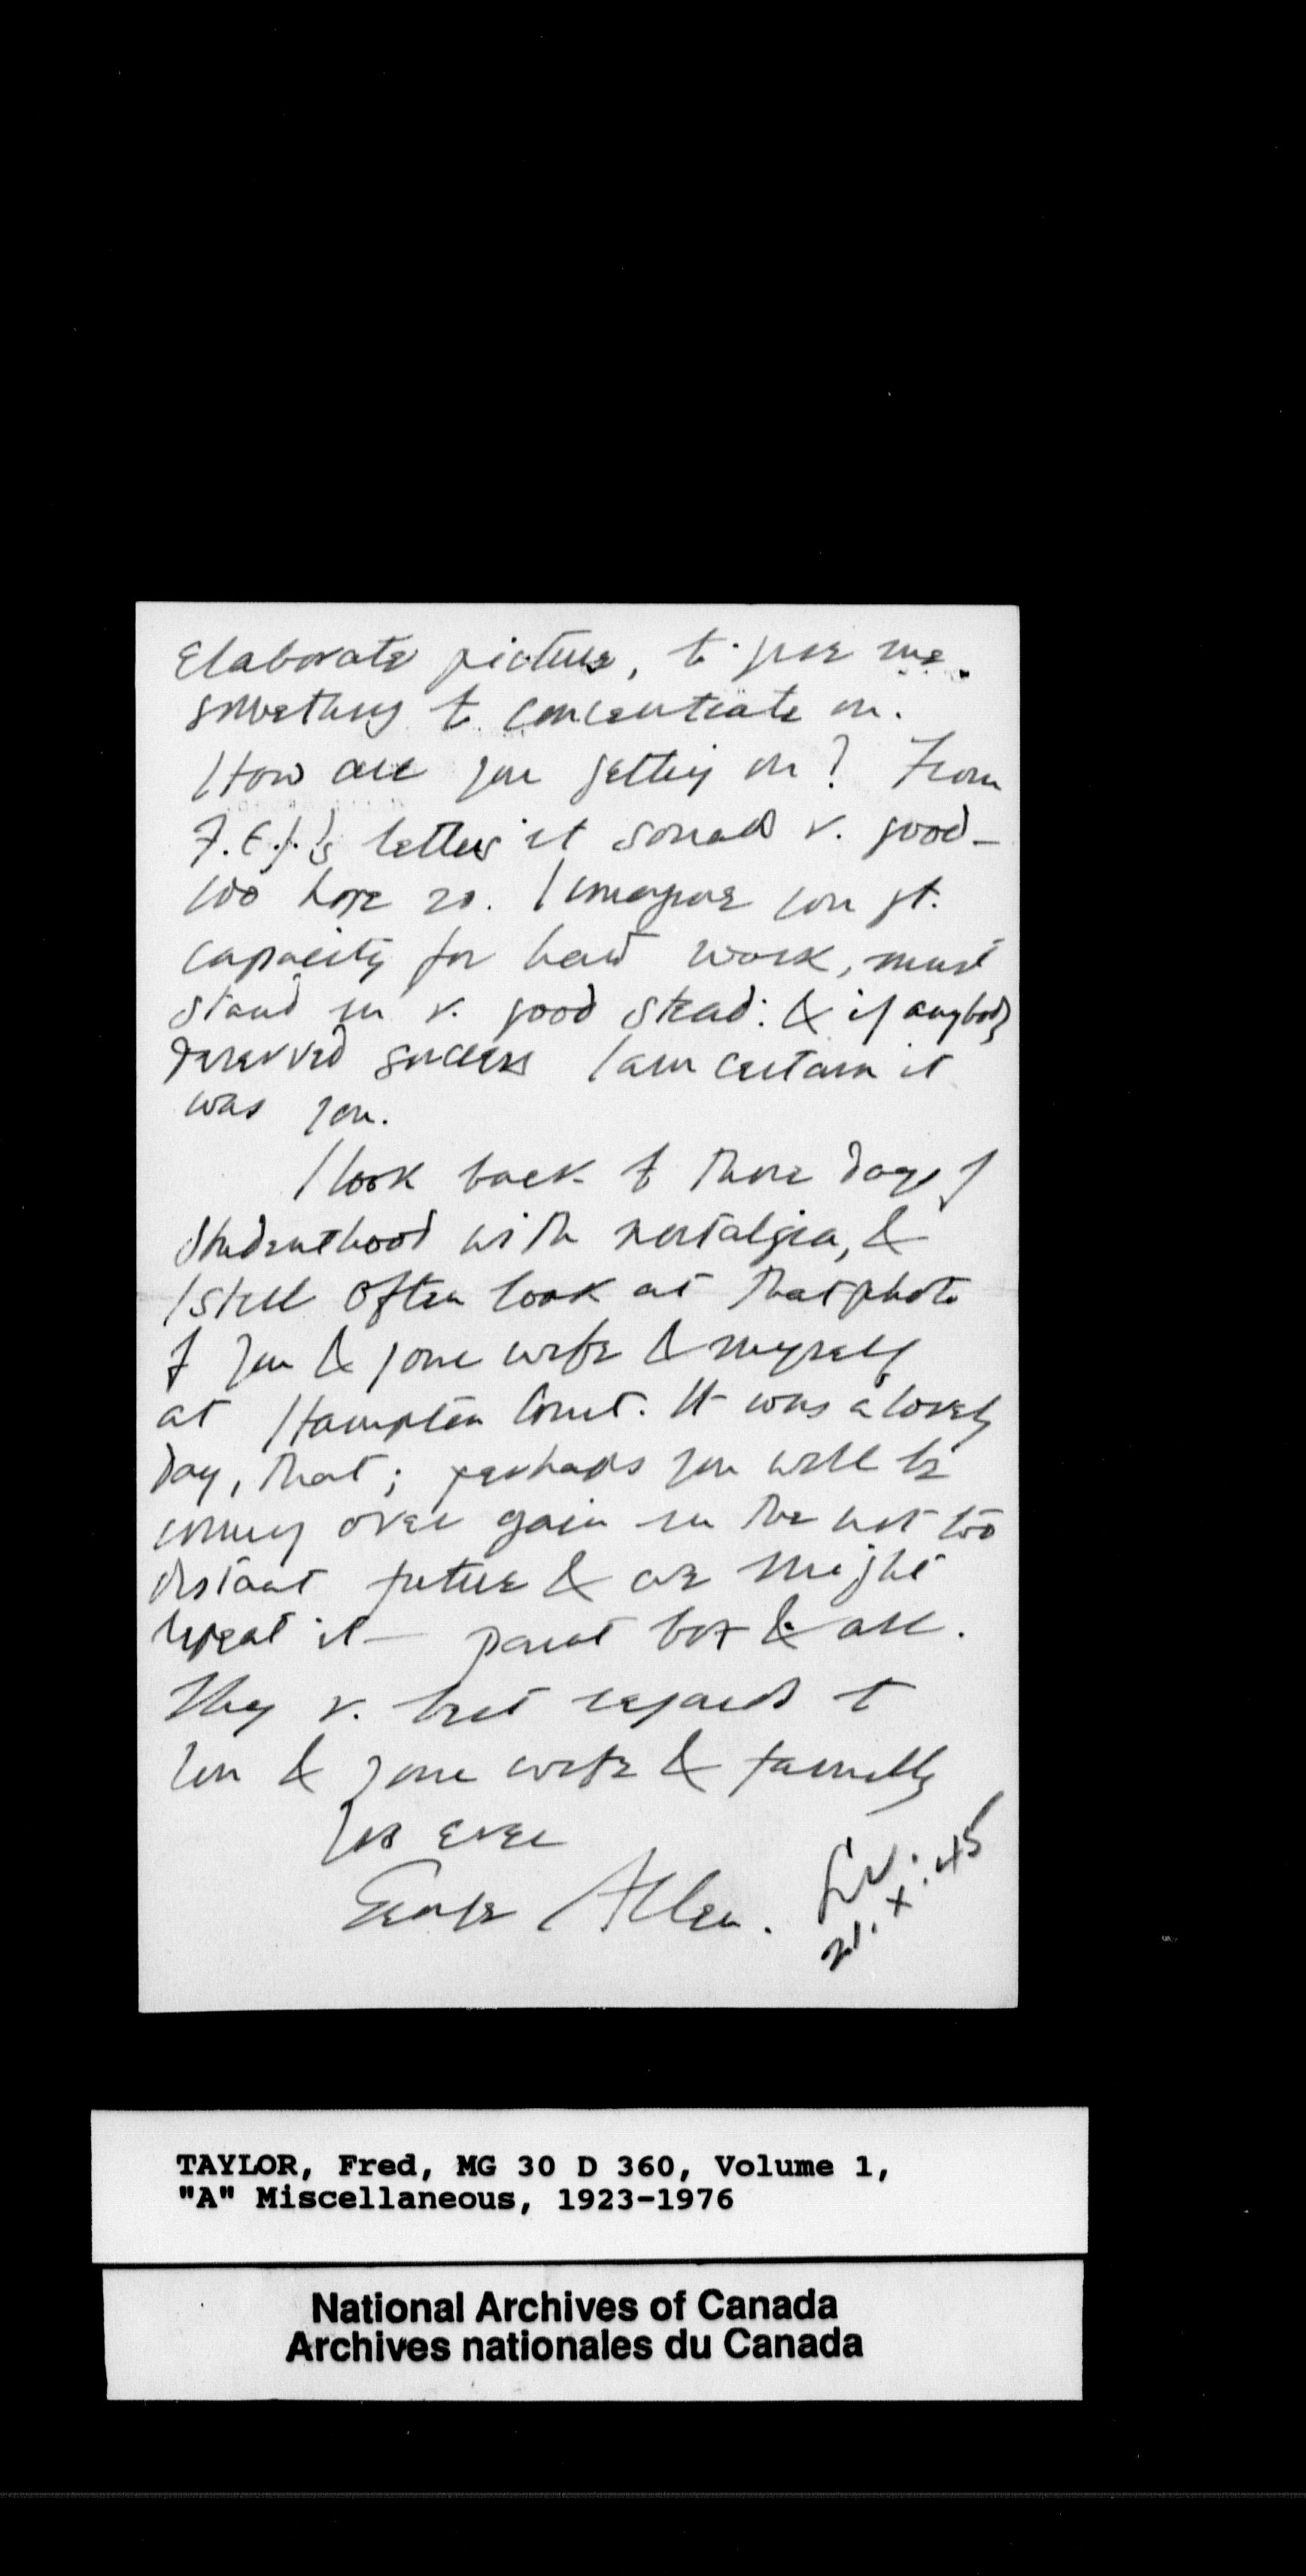 Elaborate picture, to give me
something to concentrate on.
How are you getting on? From
letters it sounds v. good -
too hope so. I imagine your gt.
capacity for hard work, must
stand in v. good stead: & if anybody
deserved success I am certain it
was you.
I look back to those days of
studenthood with nostalgia, &
I still often look at that photo
of you & your wife & myself
at Hampton Court. It was a lovely
day, that; perhaps you will be
coming over again in the not too
distant future & we might
repeat it - paint box & all.
My v. best regards to
you & your wife & family
Yrs ever
George Allen.
21. X. 45
TAYLOR, Fred, MG 30 D 360, Volume 1,
"A" Miscellaneous, 1923-1976
National Archives of Canada
Archives nationales du Canada